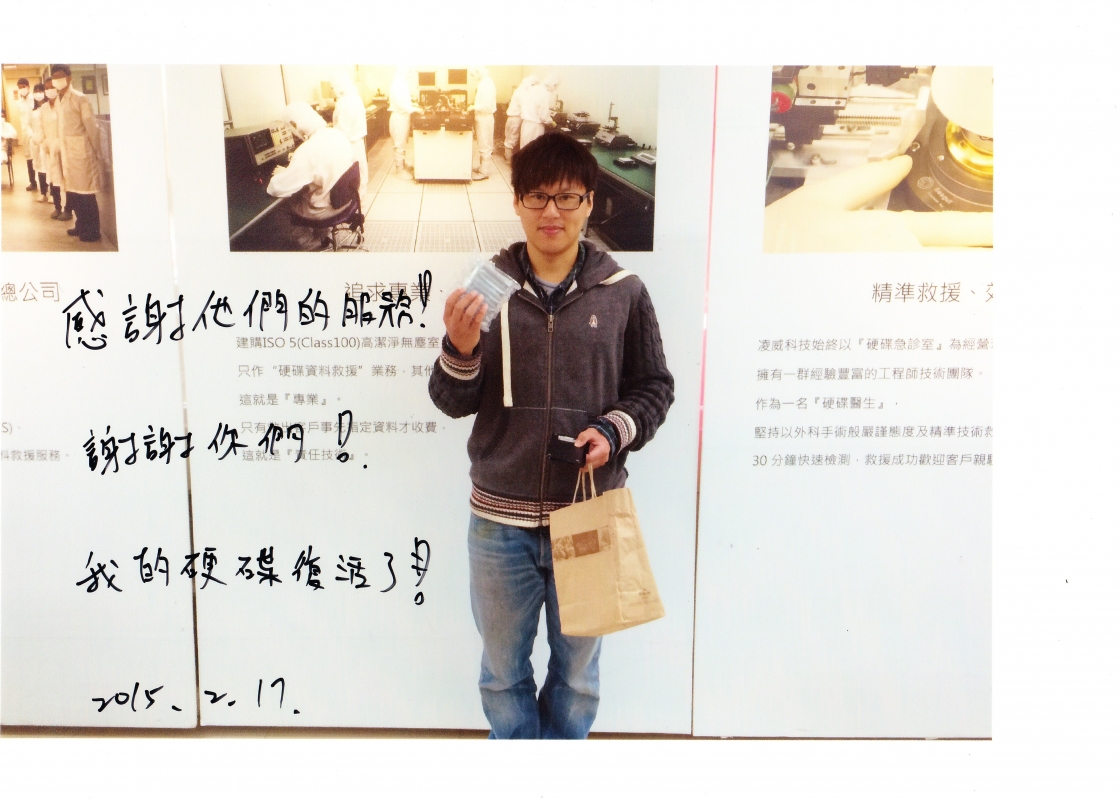 總公司
S)、
科救援服務。
追求專業、
建購ISO 5(Class100)高潔淨無塵室
只作“硬碟資料救援”業務，其他
這就是『專業』。
只有
客戶事先指定資料才收費，
這就是『責任技術』。
精準救援、
凌威科技始終以『硬碟急診室』為經營
擁有一群經驗豐富的工程師技術團隊。
作為一名『硬碟醫生』，
堅持以外科手術般嚴謹態度及精準技術救
30 分鐘快速檢測，救援成功歡迎客戶親
感謝他們的服務!!
謝謝你們!!
我的硬碟復活了!!
2015. 2. 17.